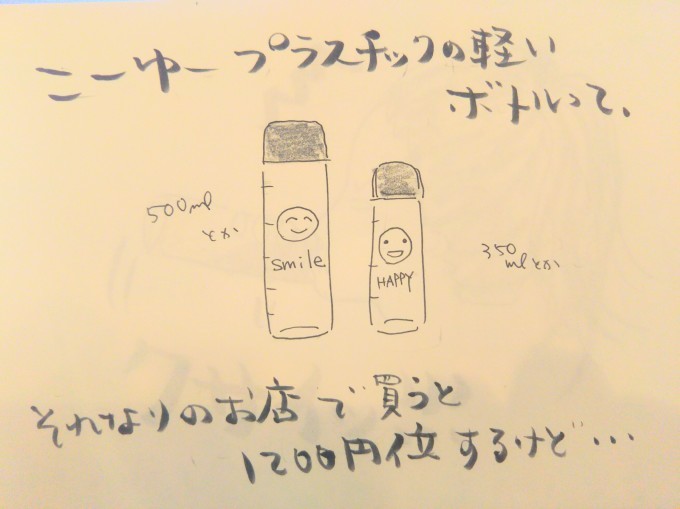 こーゆープラスチックの軽い
ボトルって、
500ml
とか
smile
HAPPY
350
mlとか
それなりのお店で買うと
1200円位するけど…